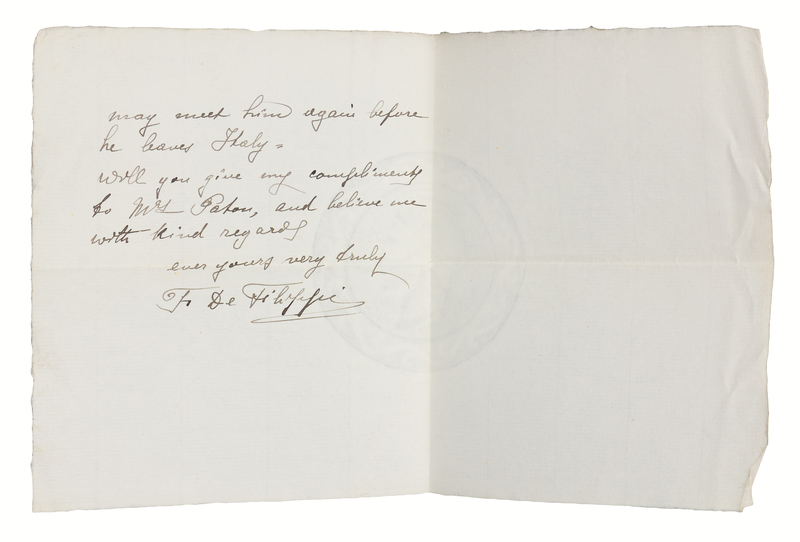 may meet him again before
he leaves Italy =
will you give my compliments
to Mrs Paton, and believe me
with kind regards
ever yours very truly
F. De Filippi